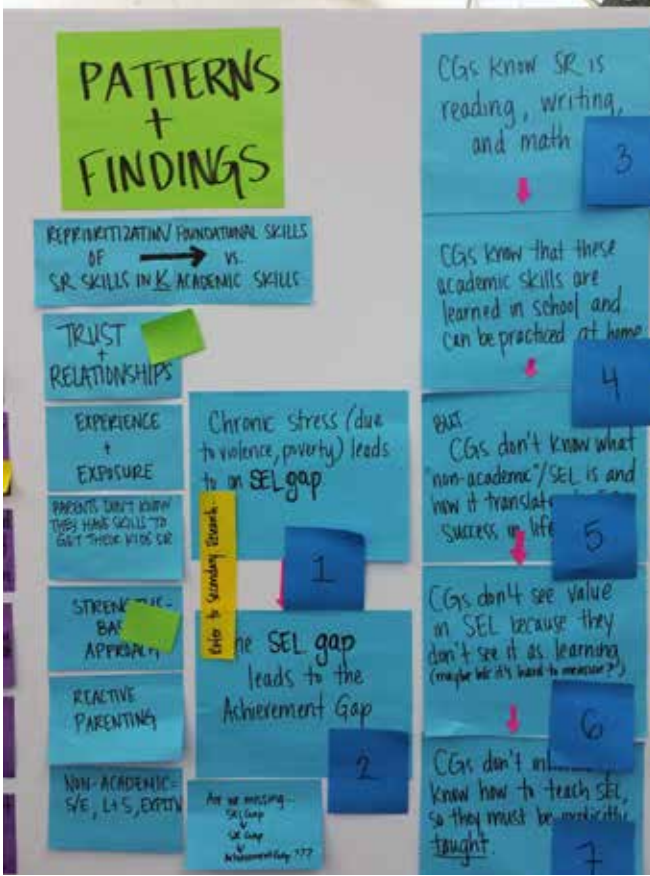 PATTERNS
+
FINDINGS
REPRIORITIZATION FOUNDATIONAL SKILLS
OF → VS.
SR SKILLS IN K ACADEMIC SKILLS
TRUST
+
RELATIONSHIPS
EXPERIENCE
+
EXPOSURE
PARENTS DON'T KNOW
THEY HAVE SKILLS TO
GET THEIR KIDS SR
APPROACH
REACTIVE
PARENTING
NON-ACADEMIC=
S/E, L+S,
Chronic stress (due
to violence, poverty) leads
to an SEL gap
Refer to Secondary Research.
1
SEL gap
leads to the
Achievement Gap
2
Are we missing...
SEL Gap
↓
SR Gap
↓
Achievement Gap ???
CGs know SR is
reading, writing,
and math
3
CGs know that these
academic skills are
learned in school and
can be practiced at home
4
BUT
CGs don't know what
"non-academic"/SEL is and
how it
success in life
5
CGs don't see value
in SEL because they
don't see it as learning
(maybe b/c it's hard to measure?)
6
CGs don't
know how to teach SEL,
so they must be
taught.
7